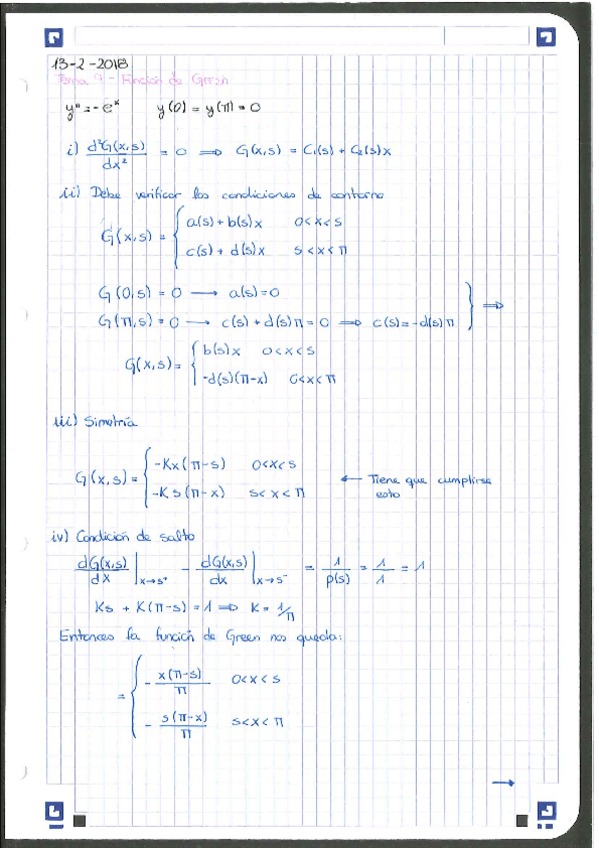 13-2-2018
Tema 9 - Función de Green
y'' = -e^x     y(0) = y(π) = 0
i) d²G(x,s)/dx² = 0 ⟹ G(x,s) = C₁(s) + C₂(s)x
ii) Debe verificar las condiciones de contorno
G(x,s) = { a(s)+b(s)x     0<x<s
c(s) + d(s)x     s<x<π
G(0,s) = 0 ⟶ a(s)=0
G(π,s) = 0 ⟶ c(s) + d(s)π = 0 ⟹ c(s) = -d(s)π } ⟹
G(x,s) = { b(s)x     0<x<s
-d(s)(π-x)     0<x<π
iii) Simetría
G(x,s) = { -Kx(π-s)     0<x<s
-Ks(π-x)     s<x<π     ⟵ Tiene que cumplirse
esto
iv) Condición de salto
dG(x,s)/dx |x→s⁺ - dG(x,s)/dx |x→s⁻ = 1/p(s) = 1/1 = 1
Ks + K(π-s) = 1 ⟹ K = 1/π
Entonces la función de Green nos queda:
= { - x(π-s)/π     0<x<s
- s(π-x)/π     s<x<π
→